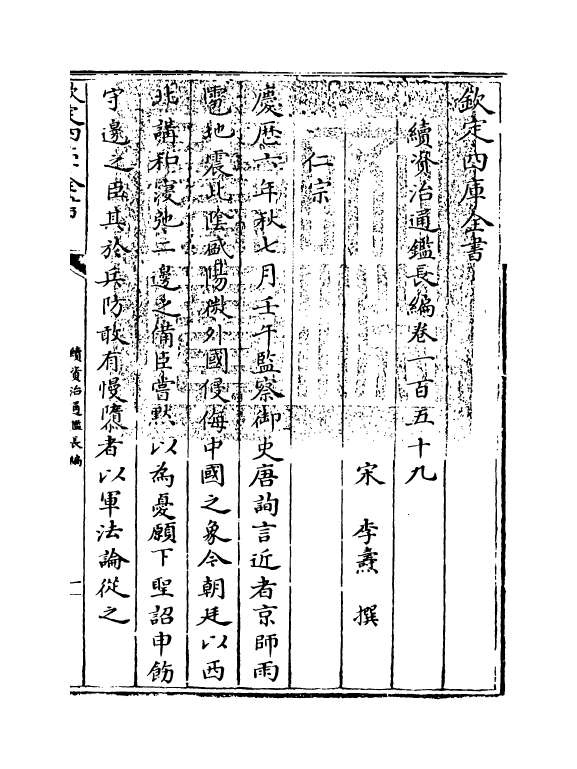 欽定四庫全書
續資治通鑑長編卷一百五十九
宋 李燾 撰
仁宗
慶厯六年秋七月壬午監察御史唐詢言近者京師雨
雹地震此陰盛陽微外國侵侮中國之象今朝廷以西
北講和寖弛二邊之備臣嘗黙以為憂願下聖詔申飭
守邊之臣其於兵防敢有慢隳者以軍法論從之
欽定四庫全書
續資治通鑑長編
一